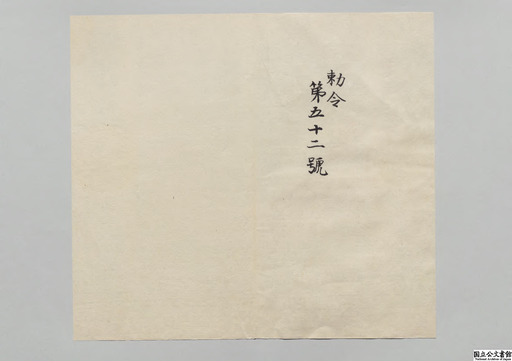 勅令
第五十二號
国立公文書館
National Archives of Japan